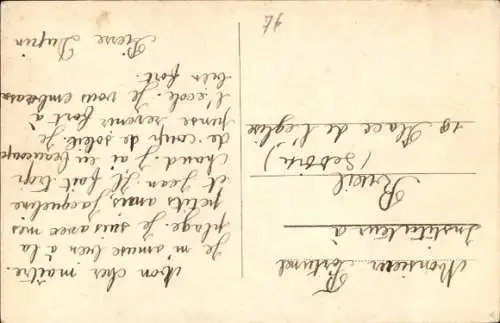 Mon cher maître.
Je m'amuse bien à la
plage. Je suis avec mes
petits amis, Jacqueline
et Jean. Il fait trop
chaud. J'ai eu beaucoup
de coup de soleil. Je
pense revenir fort à
l'école. Je vous embrasse
bien fort.
Pierre Dupin
Monsieur
Instituteur à
Rueil
19 Place de l'église